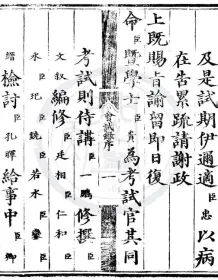 及是試期伊邇適臣忠以病
在告累疏請謝政
上既賜旨諭留即日復
命臣暨學士臣賚為考試官其同
考試則侍講臣一鵬修撰臣
文敘編修臣廷相臣仁和臣
永臣玘臣銑臣若水臣鑾臣
縉檢討臣孔暉給事中臣卿
會試錄序
一